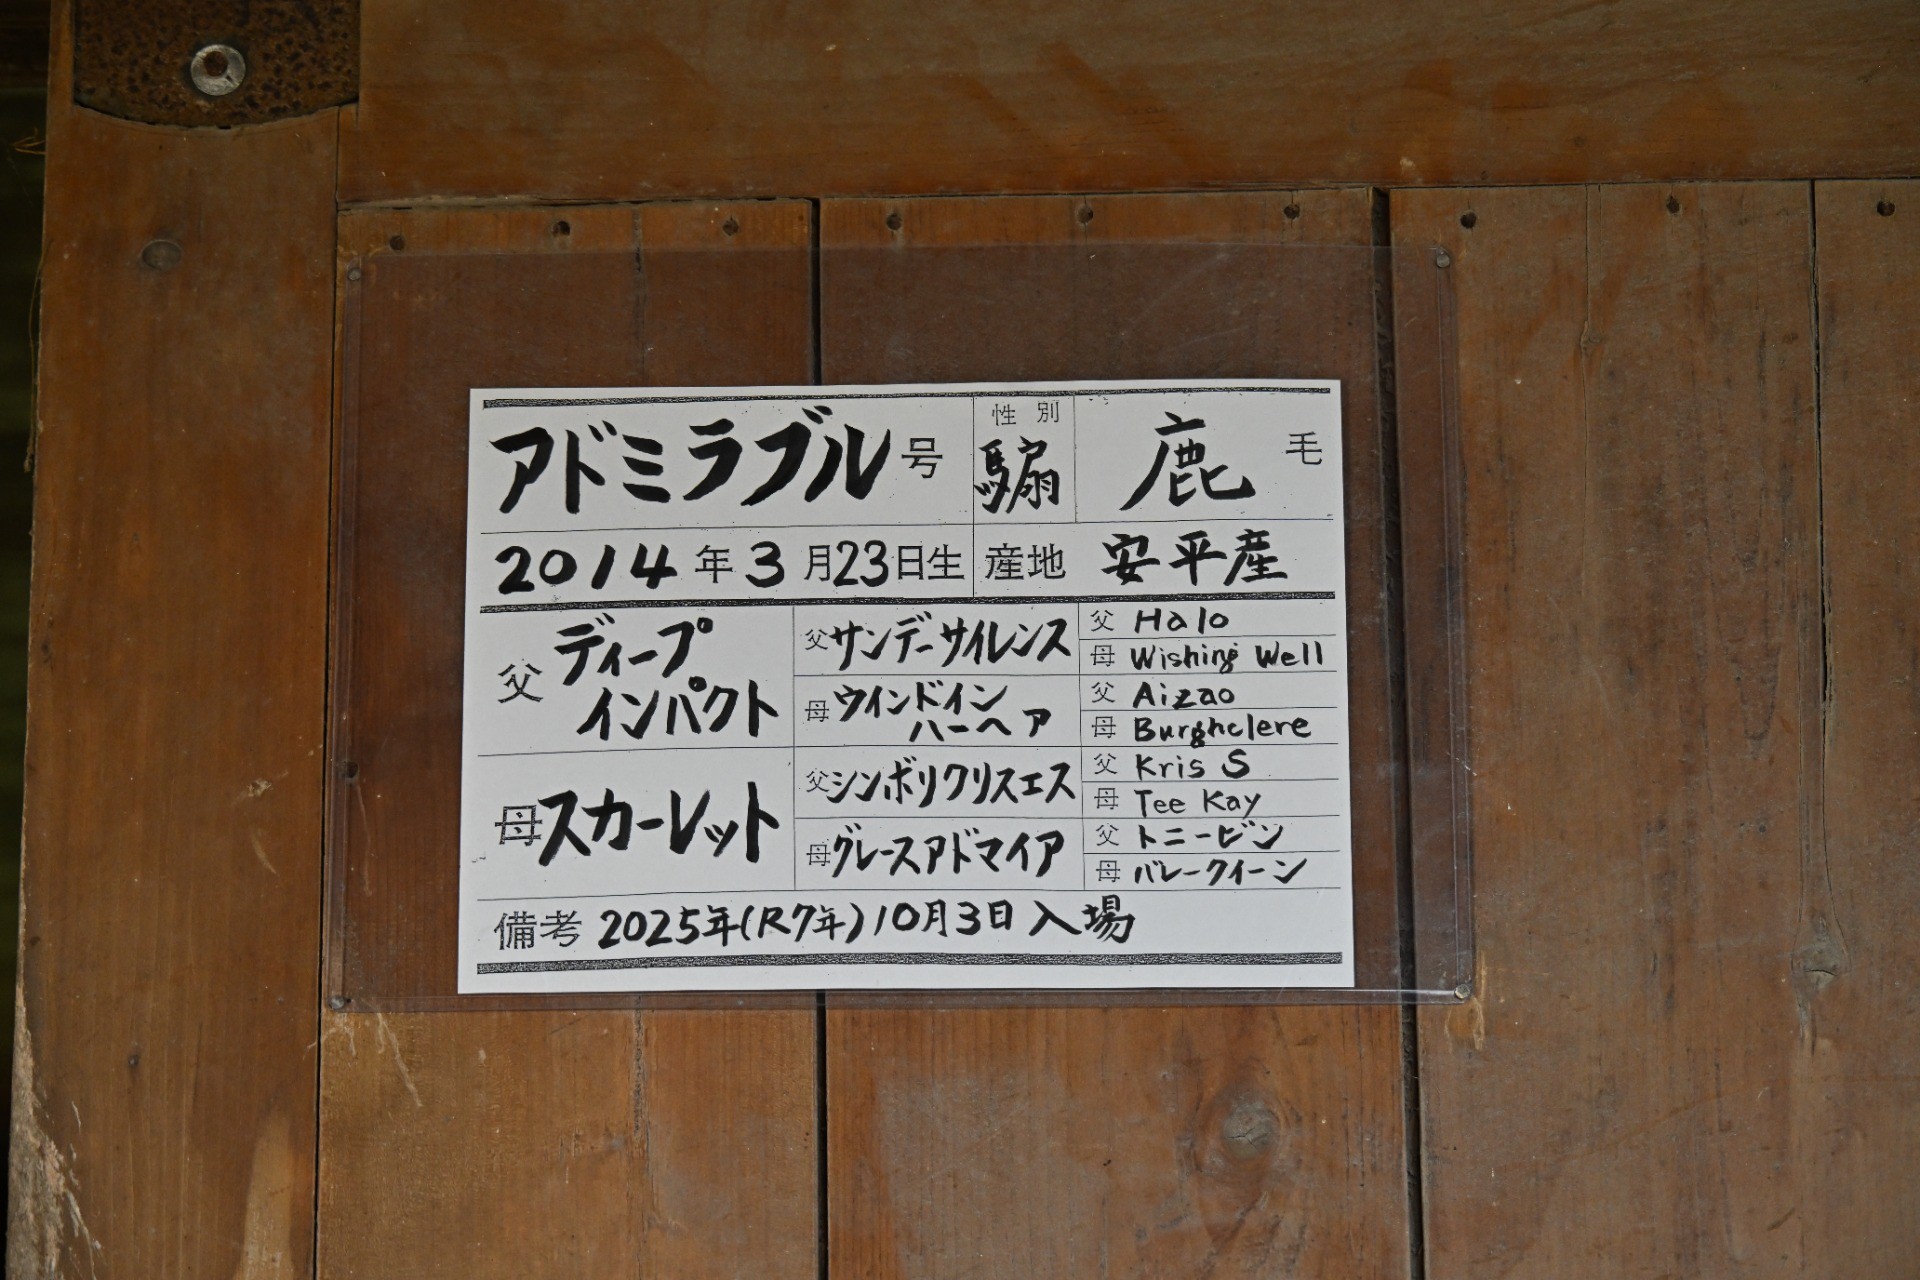 アドミラブル号 性別 騸 鹿毛
2014年3月23日生 産地 安平産
父 ディープ
インパクト
父 サンデーサイレンス
父 Halo
母 Wishing Well
母 ウインドイン
ハーヘア
父 Aizao
母 Burghclere
母 スカーレット
父 シンボリクリスエス
父 Kris S
母 Tee Kay
母 グレースアドマイア
父 トニービン
母 バレークイーン
備考 2025年(R7年)10月3日入場